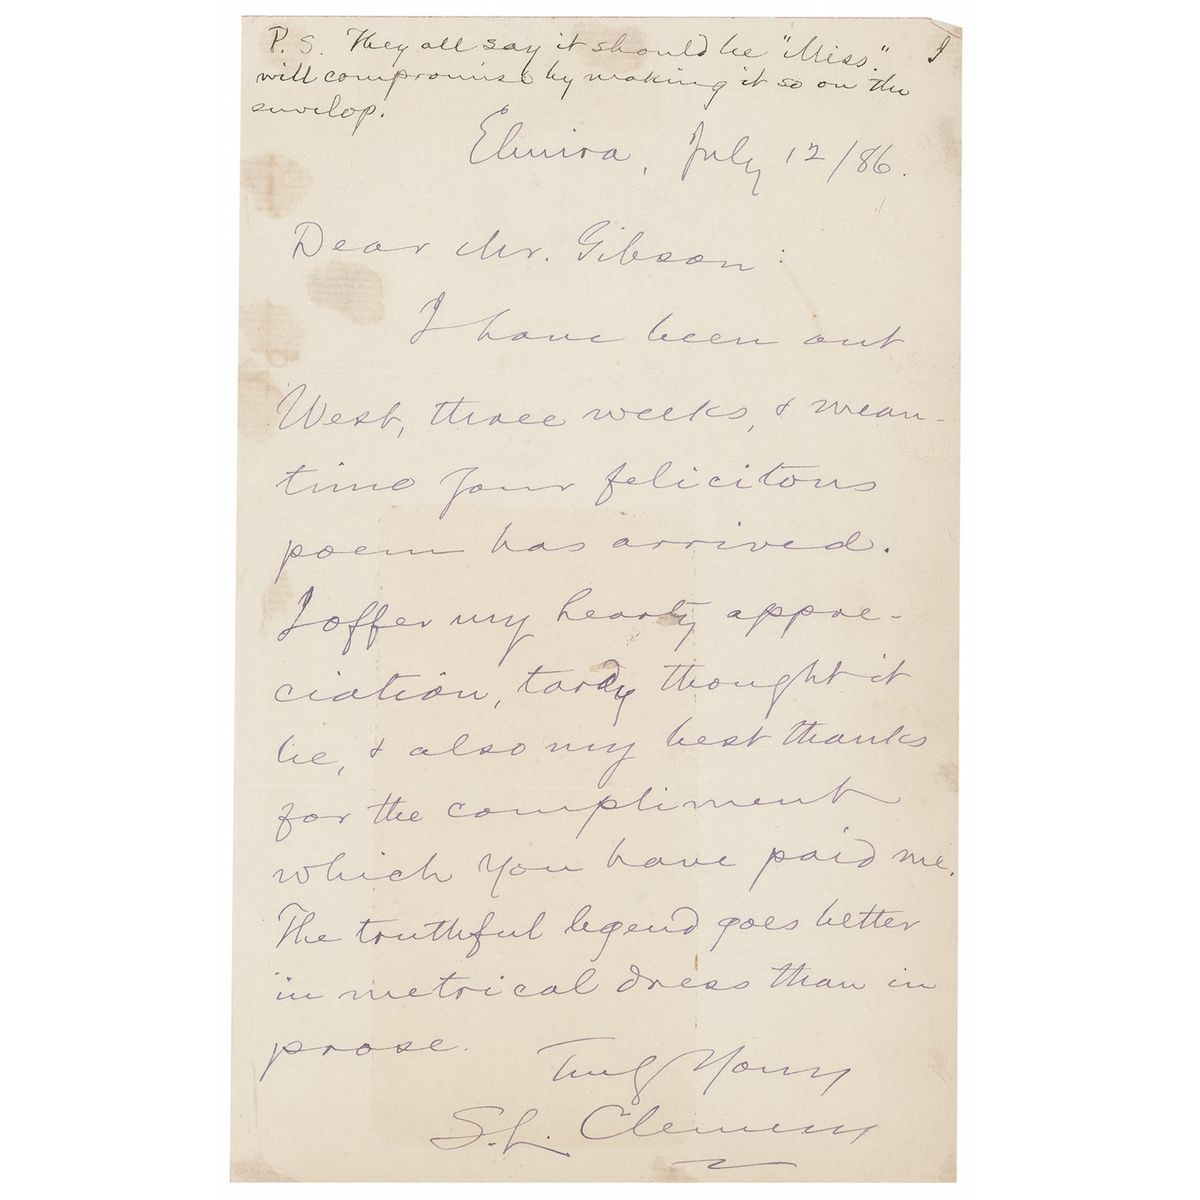 P. S. They all say it should be "Miss." I
will compromise by making it so on the
envelop.
Elmira, July 12/86.
Dear Mr. Gibson:
I have been out
West, three weeks, & mean-
time your felicitous
poem has arrived.
I offer my hearty appre-
ciation, tardy thought it
be, & also my best thanks
for the compliment
which you have paid me.
The truthful legend goes better
in metrical dress than in
prose.
Truly Yours
S. L. Clemens